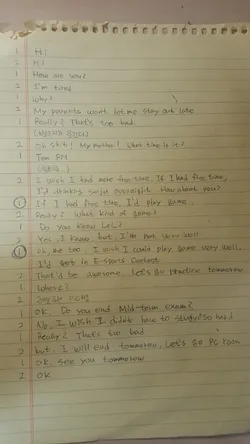 1 Hi!
2 Hi!
1 How are you?
2 I'm tired
1 Why?
2 My parents won't let me stay out late
1 Really? That's too bad.
2 Oh shit! My mother! What time is it?
1 Ten PM
2 I wish I had more free time. If I had free time,
I'd drinking soju overnight. How about you?
① If I had free time, I'd play game.
2 Really? What kind of game?
1 Do you know LoL?
2 Yes, I know but I'm not very well
① Oh me too. I wish I could play game very well.
I'd go to in E-sports Contest
2 That'd be awesome. Let's go practice tommorow
1 Where?
2 PC방
1 OK. Do you end Mid-term exam?
2 No. I wish I didn't have to study so hard
1 Really? That's too bad
2 but, I will end tommorow. Let's go PC room
1 OK. See you tommorow
2 OK